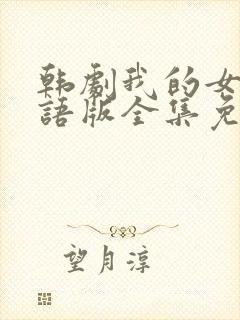 韩劇我的女
語版全集免
望月淳